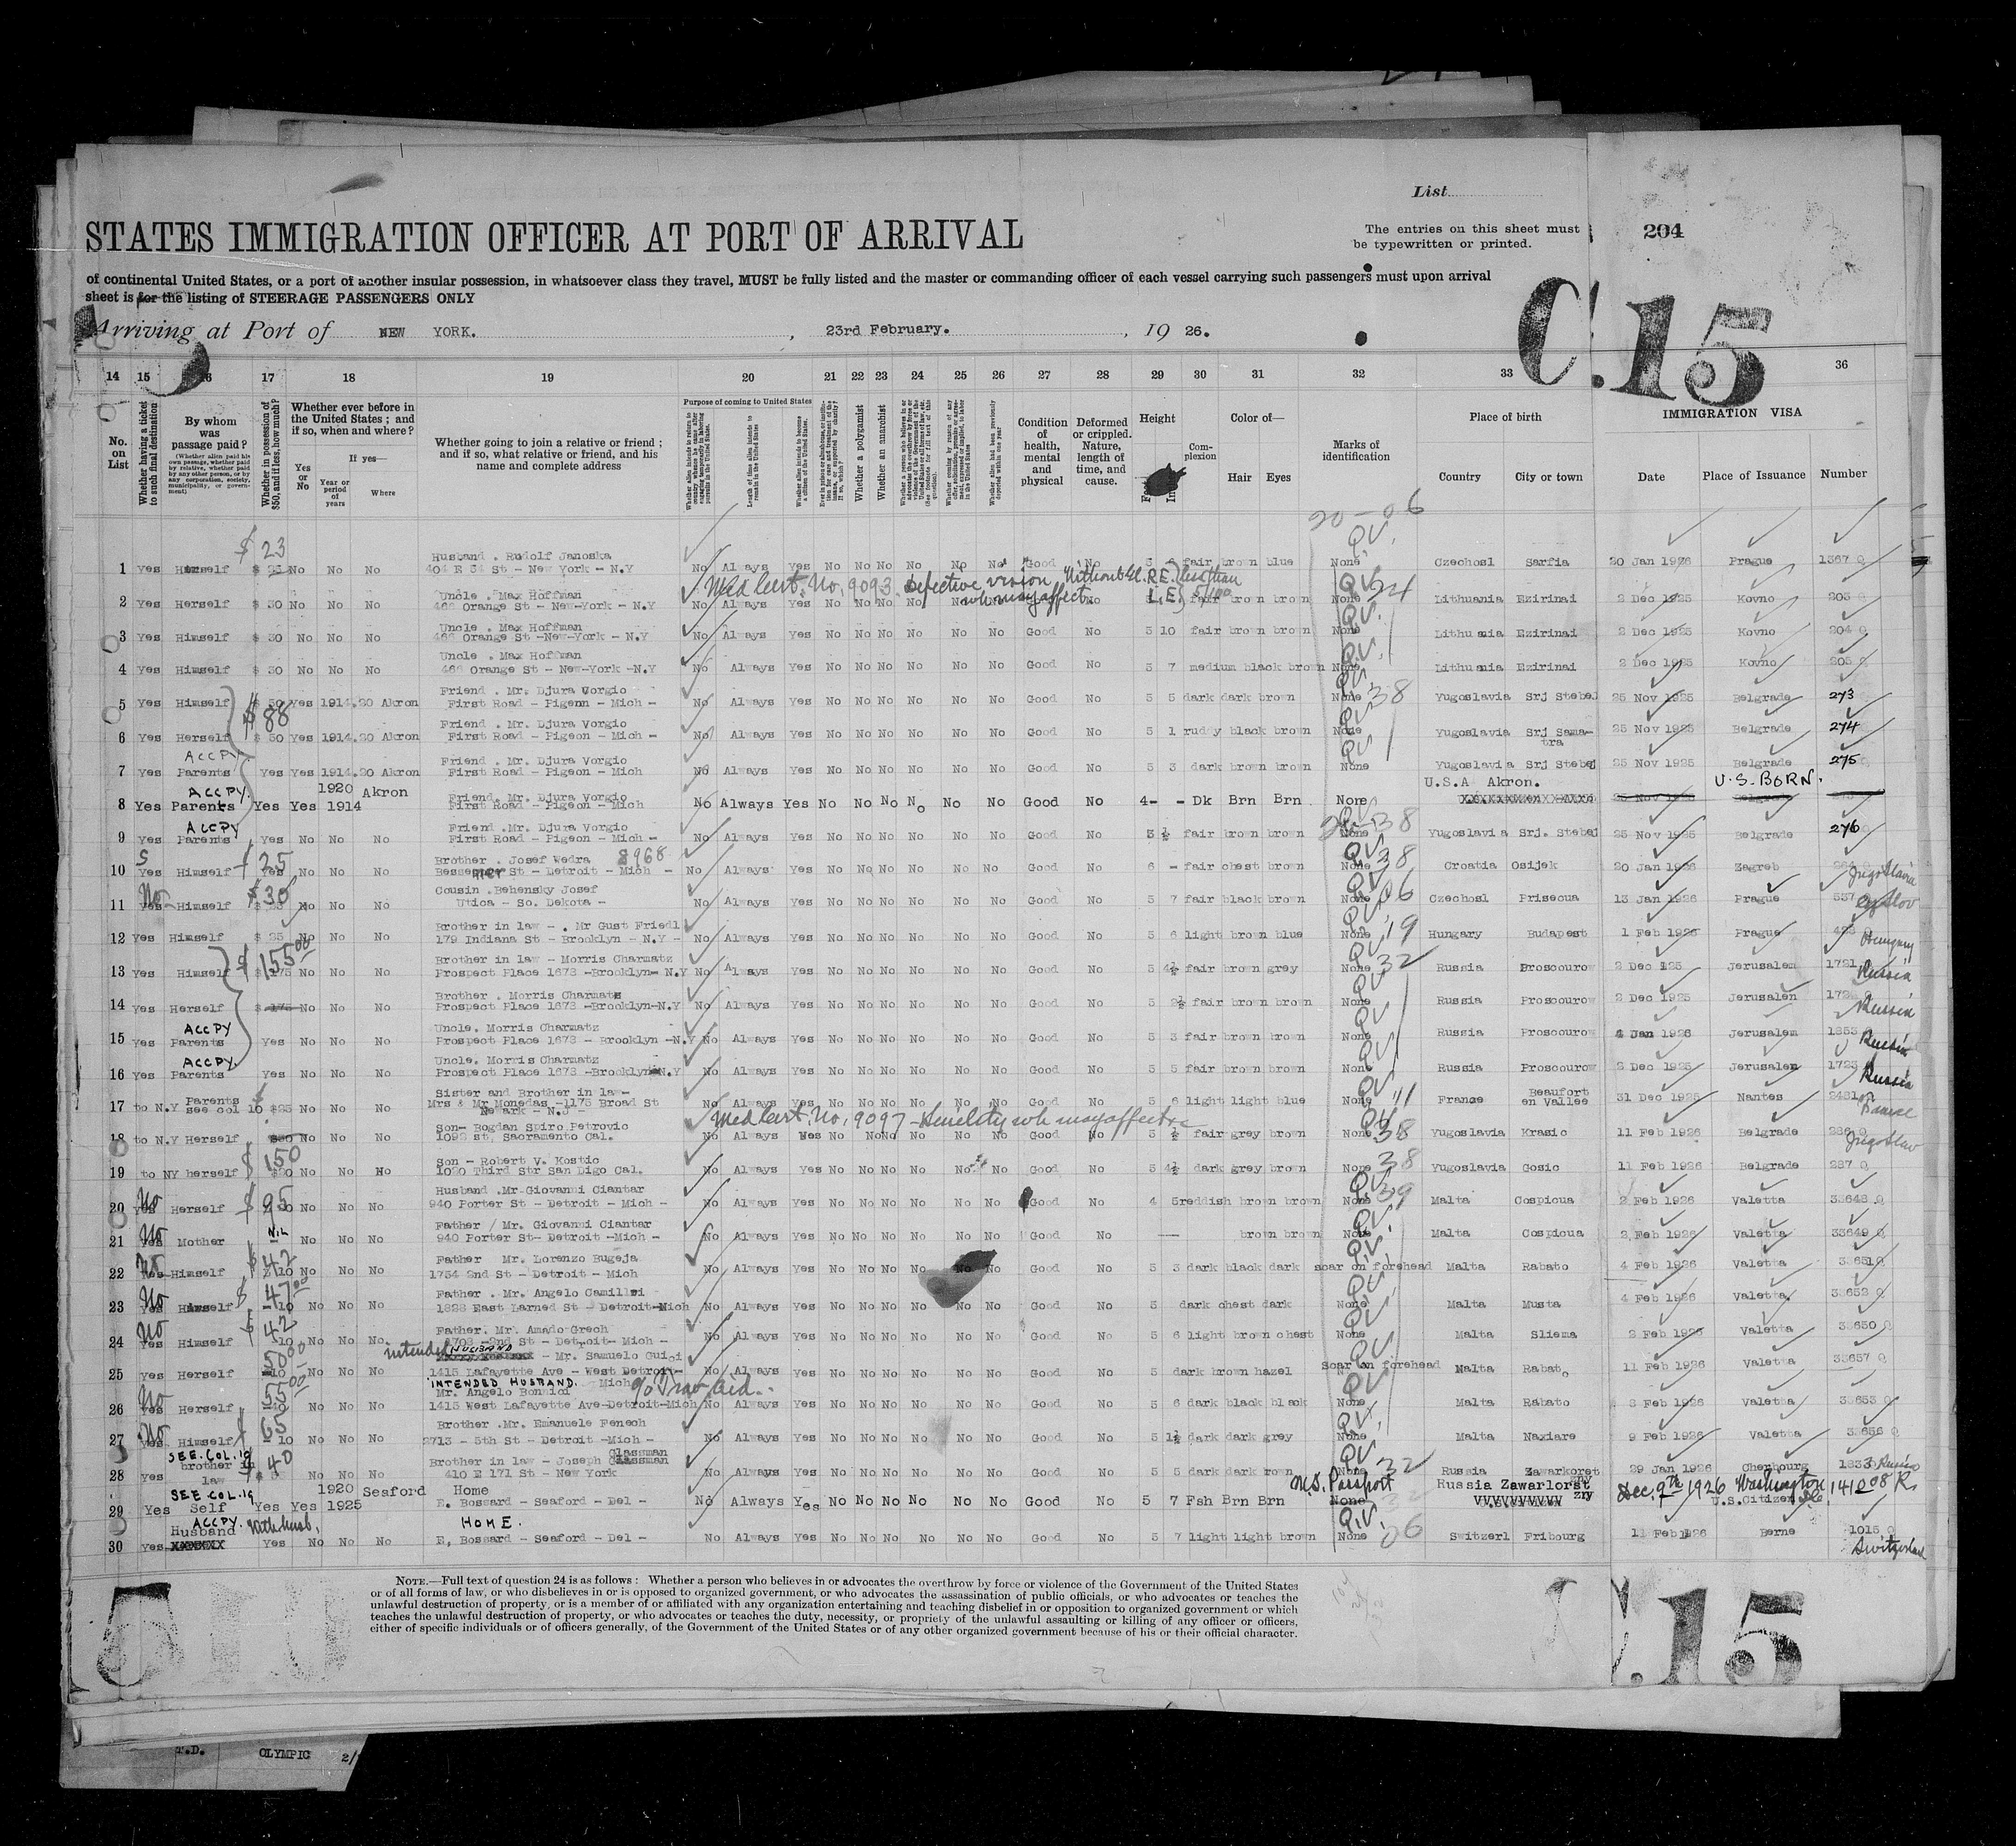 List
STATES IMMIGRATION OFFICER AT PORT OF ARRIVAL
The entries on this sheet must be typewritten or printed.
204
of continental United States, or a port of another insular possession, in whatsoever class they travel, MUST be fully listed and the master or commanding officer of each vessel carrying such passengers must upon arrival
sheet is for the listing of STEERAGE PASSENGERS ONLY
C.15
Arriving at Port of NEW YORK. , 23rd February. , 19 26.
14 15 16 17 18 19 20 21 22 23 24 25 26 27 28 29 30 31 32 33 36
No. on List
Whether having a ticket to such final destination
By whom was passage paid?
(Whether alien paid his own passage, whether paid by relative, whether paid by any other person, or by any corporation, society, municipality, or government)
Whether in possession of $50, and if less, how much?
Whether ever before in the United States; and if so, when and where?
Yes or No
If yes—
Year or period of years
Where
Whether going to join a relative or friend; and if so, what relative or friend, and his name and complete address
Purpose of coming to United States
Length of time alien intends to remain in the United States
Whether alien intends to become a citizen of the United States
Whether a polygamist
Whether an anarchist
Condition of health, mental and physical
Deformed or crippled. Nature, length of time, and cause.
Height
Complexion
Color of—
Hair Eyes
Marks of identification
Place of birth
Country City or town
IMMIGRATION VISA
Date Place of Issuance Number
20-06
1 Yes Herself $ 23 No No No Husband . Rudolf Janoska 404 E 54 St - New York - N.Y No Always Yes No No No No No No Good No 5 6 fair brown blue None Czechosl Sarfia 20 Jan 1926 Prague 1367
Med Cert. No. 9093. Defective vision without Gl. R.E. L.E. less than 5/100 wh may affect
2 Yes Herself $ 30 No No No Uncle . Max Hoffman 466 Orange St - New-York - N.Y No Always Yes No fair brown brown None Lithuania Ezirinai 2 Dec 1925 Kovno 203
3 Yes Himself $ 30 No No No Uncle . Max Hoffman 466 Orange St -New-York - N.Y No Always Yes No No No No No No Good No 5 10 fair brown brown None Lithuania Ezirinai 2 Dec 1925 Kovno 204
4 Yes Himself $ 30 No No No Uncle . Max Hoffman 466 Orange St - New-York -N.Y No Always Yes No No No No No No Good No 5 7 medium black brown None Lithuania Ezirinai 2 Dec 1925 Kovno 205
5 Yes Himself $ 50 Yes 1914.20 Akron Friend . Mr. Djura Vorgio First Road - Pigenn - Mich - No Always Yes No No No No No No Good No 5 5 dark dark brown None 38 Yugoslavia Srj Stebej 25 Nov 1925 Belgrade 273
$ 88
6 Yes Herself $ 50 Yes 1914.20 Akron Friend . Mr. Djura Vorgio First Road - Pigeon - Mich - No Always Yes No No No No No No Good No 5 1 ruddy black brown None Yugoslavia Srj Sama-tra 25 Nov 1925 Belgrade 274
7 Yes ACCPY Parents Yes Yes 1914.20 Akron Friend . Mr. Djura Vorgio First Road - Pigeon - Mich No Always Yes No No No No No No Good No 5 3 dark brown brown None Yugoslavia Srj Stebej 25 Nov 1925 Belgrade 275
8 Yes ACCPY. Parents Yes Yes 1920 1914 Akron Friend. Mr. Djura Vorgio First Road - Pigeon - Mich No Always Yes No No No No No No Good No 4- - Dk Brn Brn None U.S.A Akron. 25 Nov 1925 U.S. BORN.
9 Yes ACCPY Parents Yes No No No Friend .Mr. Djura Vorgio First Road - Pigeon - Mich - No Always Yes No No No No No No Good No 3 ½ fair brown brown None 38 Yugoslavia Srj. Stebej 25 Nov 1925 Belgrade 276
10 Yes Himself $ 25 Yes No No No Brother . Josef Wedra 8968 Bessemer St - Detroit - Mich - No Always Yes No No No No No No Good No 6 - fair chest brown None 38 Croatia Osijek 20 Jan 1926 Zagreb Jugoslavia
11 No Yes Himself $ 30 No No No Cousin .Behensky Josef Utica - So. Dekota - No Always Yes No No No No No No Good No 5 7 fair black brown None 06 Czechosl Prisecua 13 Jan 1926 Prague 537
12 Yes Himself $ 25 No No No Brother in law - . Mr Gust Friedl 179 Indiana St - Brooklyn - N.Y - No Always Yes No No No No No No Good No 5 6 light brown blue None 19 Hungary Budapest 1 Feb 1926 Prague Hungary
13 Yes Himself $ 155.00 $ 175 No No No Brother in law - Morris Charmatz Prospect Place 1673 -Brooklyn- N.Y No Always Yes No No No No No No Good No 5 4½ fair brown grey None 32 Russia Proscourow 2 Dec 125 Jerusalem 1721 Russia
14 Yes Herself $ 175 No No No Brother . Morris Charmatz Prospect Place 1673 -Brooklyn-N.Y No Always Yes No No No No No No Good No 5 2½ fair brown brown None Russia Proscourow 2 Dec 1925 Jerusalen Russia
15 Yes ACCPY Parents Yes No No No Uncle. Morris Charmatz Prospect Place 1673 - Brooklyn -N.Y No Always Yes No No No No No No Good No 5 3 fair brown brown None Russia Proscourow 4 Jan 1926 Jerusalem 1853 Russia
16 Yes ACCPY. Parents Yes No No No Uncle. Morris Charmatz Prospect Place 1673 -Brooklyn-N.Y No Always Yes No No No No No No Good No 5 5 fair brown brown None Russia Proscourow 2 Dec 1925 Jerusalem 1723 Russia
17 to N.Y Parents see col 10 $25 No No No Sister and Brother in law- Mrs & Mr Monedas -1175 Broad St Newark - N.J - No Always Yes No No No No No No Good No 5 6 light light blue None 11 France Beaufort en Vallee 31 Dec 1925 Nantes 2481 France
Med Cert. No. 9097 - Senility wh may affect
18 to N.Y Herself $50 No No No Son- Bogdan Spiro Petrovic 1092 st, Sacramento Cal. No Always Yes No No No No No No Good No 5 ½ fair grey brown None 38 Yugoslavia Krasic 11 Feb 1926 Belgrade 286 Jugoslav
19 to NY herself $ 150 No No No Son - Robert V. Kostic 1020 Third Str San Digo Cal. No Always Yes No No No No No No Good No 5 4½ dark grey brown None 38 Yugoslavia Gosic 11 Feb 1926 Belgrade 287
20 No Yes Herself $ 95 No No No Husband .Mr Giovanni Ciantar 940 Porter St - Detroit - Mich - No Always Yes No No No No No No Good No 4 5 reddish brown brown None 39 Malta Cospicua 2 Feb 1926 Valetta 33648
21 No Yes Mother NIL No No No Father / Mr. Giovanni Ciantar 940 Porter St- Detroit -Mich - No Always Yes No No No No No No Good No brown brown None Malta Cospicua 2 Feb 1926 Valetta 33649
22 No Yes Himself $ 42 10 No No No Father Mr. Lorenzo Bugeja 1754 2nd St - Detroit - Mich No Always Yes No No No No No No Good No 5 3 dark black dark scar on forehead Malta Rabato 4 Feb 1926 Valetta 33651
23 No Yes Himself $ 47.00 10 No No No Father . Mr. Angelo Camilleri 1828 East Larned St - Detroit-Mich No Always Yes No No No No No No Good No 5 dark chest dark None Malta Musta 4 Feb 1926 Valetta 33652
24 No Yes Himself $ 42 10 No No No Father. Mr. Amado Grech 2nd St - Detroit- Mich - No Always Yes No No No No No No Good No 5 6 light brown chest None Malta Sliema 2 Feb 1926 Valetta 33650
25 Yes Herself 50.00 No No No intended HUSBAND - Mr. Samuelo Guidi 1415 Lafayette Ave - West Detroit- Mich No Always Yes No No No No No No Good No 5 dark brown hazel Scar on forehead Malta Rabat. 11 Feb 1926 Valetta 33657
26 No Herself 55.00 No No No INTENDED HUSBAND. Mr. Angelo Bonnici c/o Trav. Aid. 1415 West Lafayette Ave-Detroit-Mich No Always Yes No No No No No No Good No 5 6 dark black black None Malta Rabato 8 Feb 1926 Valetta 33653
27 No Yes Himself $ 65 10 No No No Brother .Mr. Emanuele Fenech 2713 - 5th St - Detroit -Mich - No Always Yes No No No No No No Good No 5 1½ dark dark grey None Malta Naxiare 9 Feb 1926 Valetta 33656
28 Yes SEE. COL. 19 brother in law $ 40 No No No Brother in law - Joseph Glassman 410 E 171 St - New York No Always Yes No No No No No No Good No 5 5 dark dark rown None 32 Russia Zawarkoret 29 Jan 1926 Cherbourg 1833 Russia
29 Yes SEE. COL. 19 Self Yes Yes 1920 1925 Seaford Home E. Bossard - Seaford - Del - No Always Yes No No No No No No Good No 5 7 Fsh Brn Brn U.S. Passport None Russia Zawarlorst zny Dec. 9th 1926 Washington DC 141008 R. U.S.Citizen
30 Yes ACCPY. Husband With husb. Yes No No No HOME. E, Bossard - Seaford - Del - No Always Yes No No No No No No Good No 5 7 light light brown None 06 Switzerl Fribourg 11 Feb 1926 Berne 1015 Switzerland
NOTE.—Full text of question 24 is as follows: Whether a person who believes in or advocates the overthrow by force or violence of the Government of the United States
or of all forms of law, or who disbelieves in or is opposed to organized government, or who advocates the assassination of public officials, or who advocates or teaches the
unlawful destruction of property, or is a member of or affiliated with any organization entertaining and teaching disbelief in or opposition to organized government or which
teaches the unlawful destruction of property, or who advocates or teaches the duty, necessity, or propriety of the unlawful assaulting or killing of any officer or officers,
either of specific individuals or of officers generally, of the Government of the United States or of any other organized government because of his or their official character.
C.15
T.D. OLYMPIC 2/